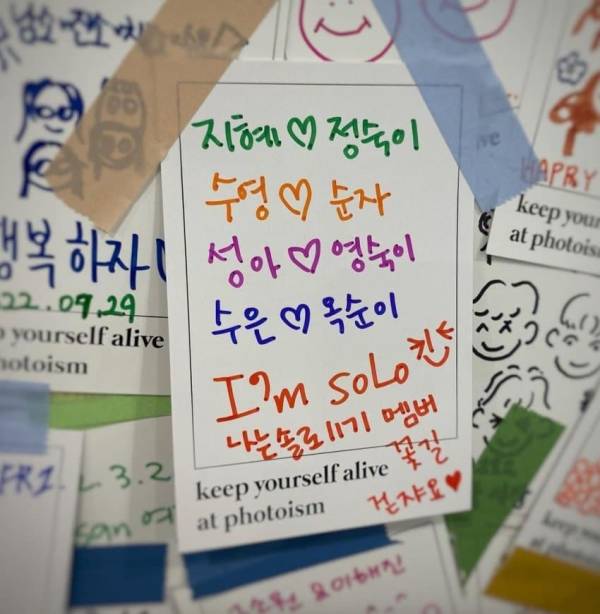 지혜♡정숙이
수영♡순자
성아♡영숙이
수은♡옥순이
I'm solo 킨
나는솔로 11기 멤버
꽃길
걷자요♥
keep yourself alive
at photoism
행복하자
22.09.29
yourself alive
photoism
HAPPY
keep your
at photois